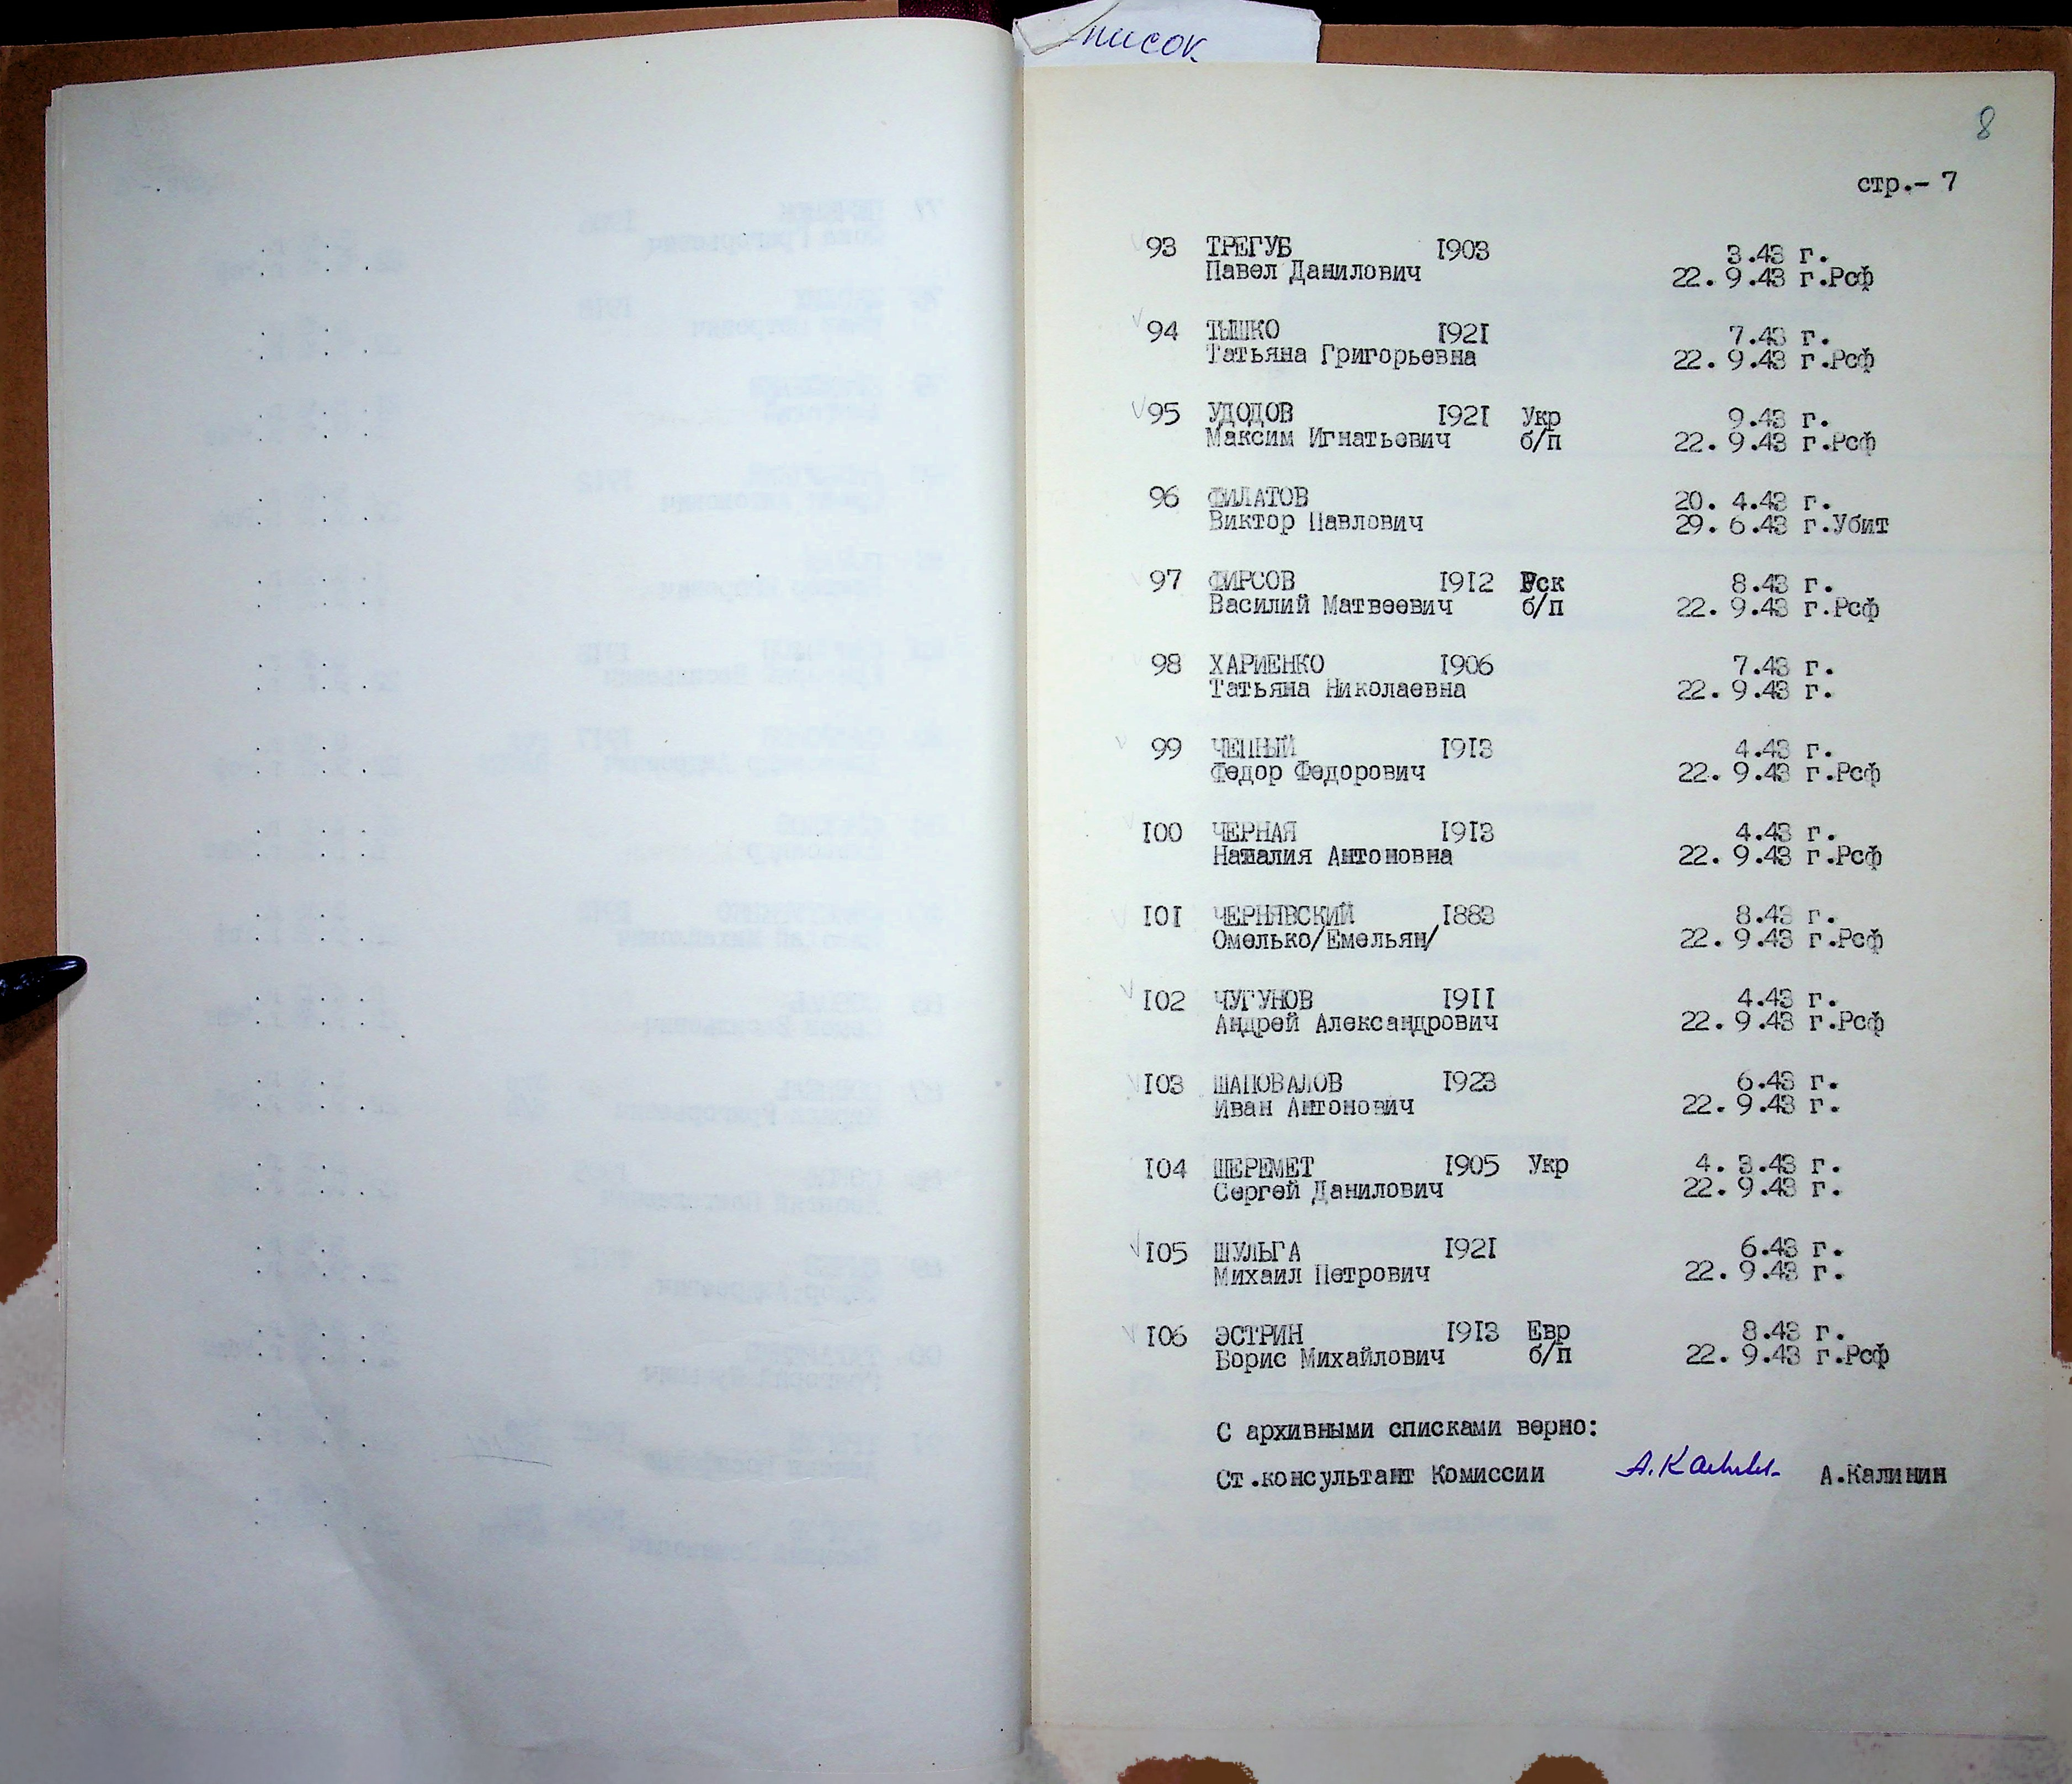 Список
8
стр.- 7
93 ТРЕГУБ 1903 3.43 г.
Павел Данилович 22. 9.43 г.Рсф
94 ТЫШКО 1921 7.43 г.
Татьяна Григорьевна 22. 9.43 г.Рсф
95 УДОДОВ 1921 Укр 9.43 г.
Максим Игнатьевич б/п 22. 9.43 г.Рсф
96 ФИЛАТОВ 20. 4.43 г.
Виктор Павлович 29. 6.43 г.Убит
97 ФИРСОВ 1912 Рск 8.43 г.
Василий Матвеевич б/п 22. 9.43 г.Рсф
98 ХАРИЕНКО 1906 7.43 г.
Татьяна Николаевна 22. 9.43 г.
99 ЧЕПНЫЙ 1913 4.43 г.
Федор Федорович 22. 9.43 г.Рсф
100 ЧЕРНАЯ 1913 4.43 г.
Наталия Антоновна 22. 9.43 г.Рсф
101 ЧЕРНЯВСКИЙ 1883 8.43 г.
Омелько/Емельян/ 22. 9.43 г.Рсф
102 ЧУГУНОВ 1911 4.43 г.
Андрей Александрович 22. 9.43 г.Рсф
103 ШАПОВАЛОВ 1923 6.43 г.
Иван Антонович 22. 9.43 г.
104 ШЕРЕМЕТ 1905 Укр 4. 3.43 г.
Сергей Данилович 22. 9.43 г.
105 ШУЛЬГА 1921 6.43 г.
Михаил Петрович 22. 9.43 г.
106 ЭСТРИН 1913 Евр 8.43 г.
Борис Михайлович б/п 22. 9.43 г.Рсф
С архивными списками верно:
Ст.консультант Комиссии А.Калинин